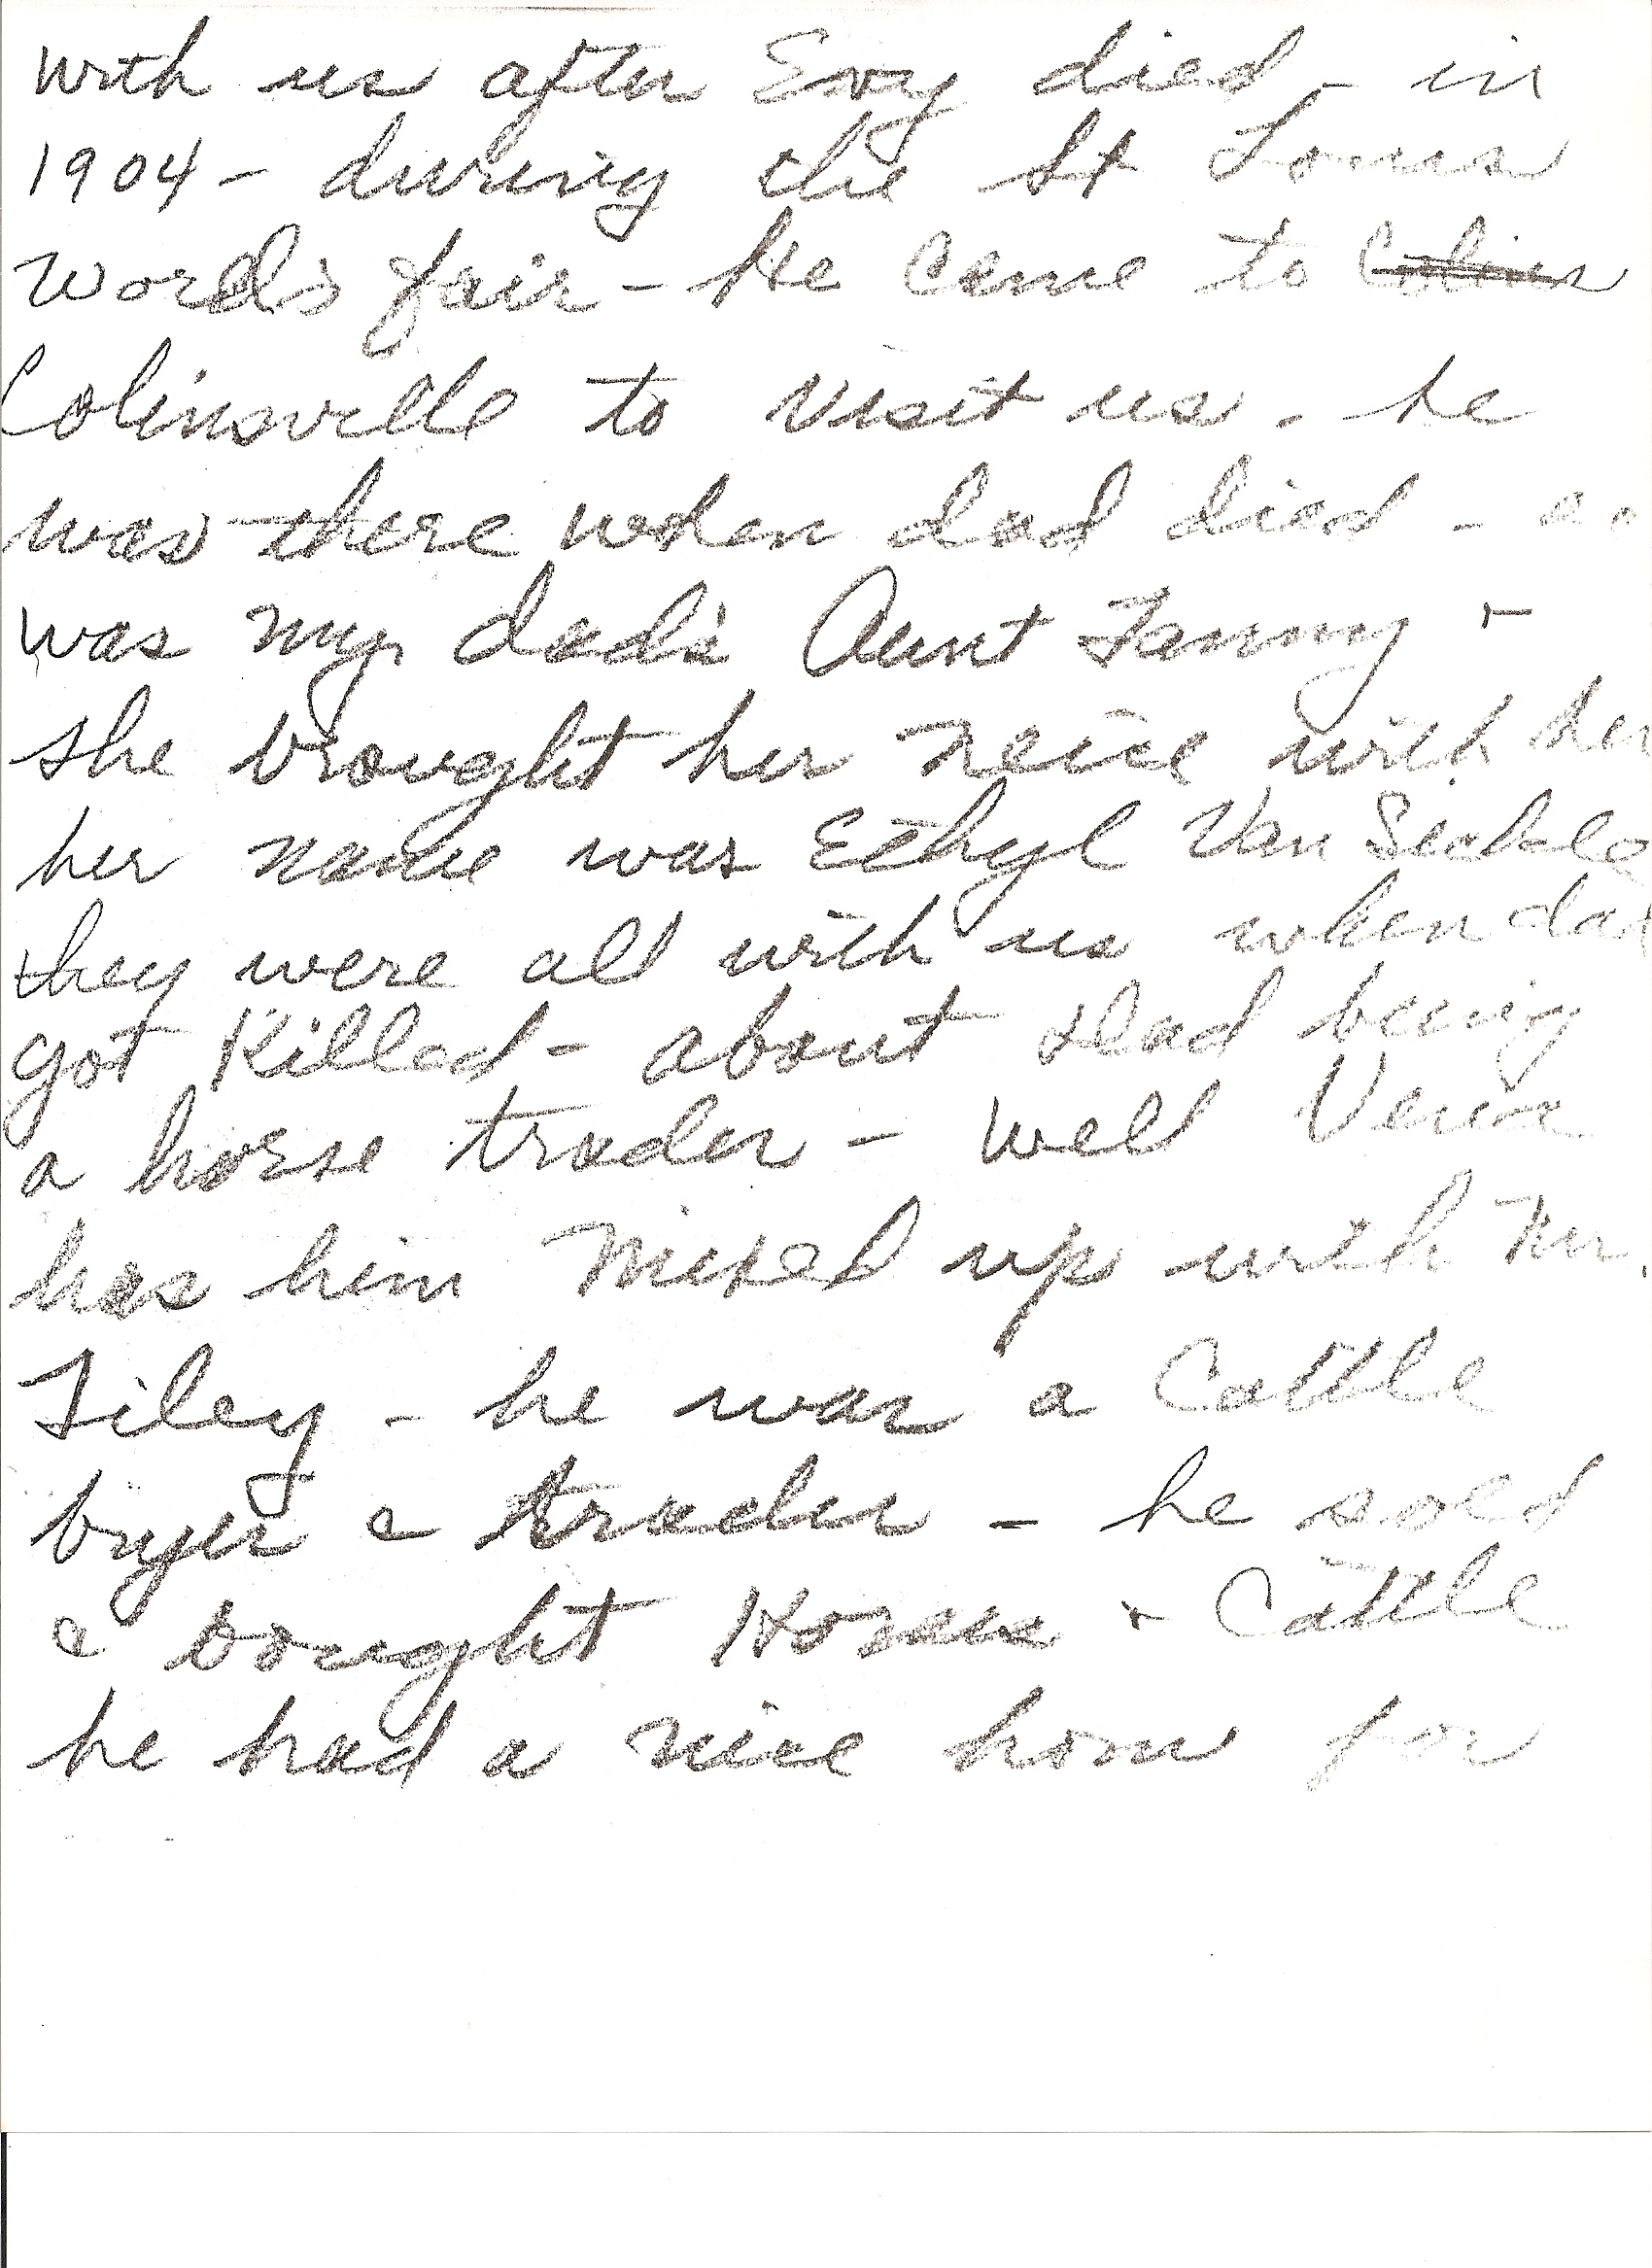 with us after Evy died - in
1904 - during the St Louis
Worlds fair - He Came to Colins
Colinsville to visit us - he
was there when dad died -
was my dad's Aunt Fanny +
she brought her neice with her
her name was Ethyl Van Sickle
they were all with us when dad
got Killed - about dad being
a horse trader - well
has him mixed up with Mr.
Tiley - he was a Cattle
buyer & trader - he sold
& bought Horses + Cattle
he had a nice home for